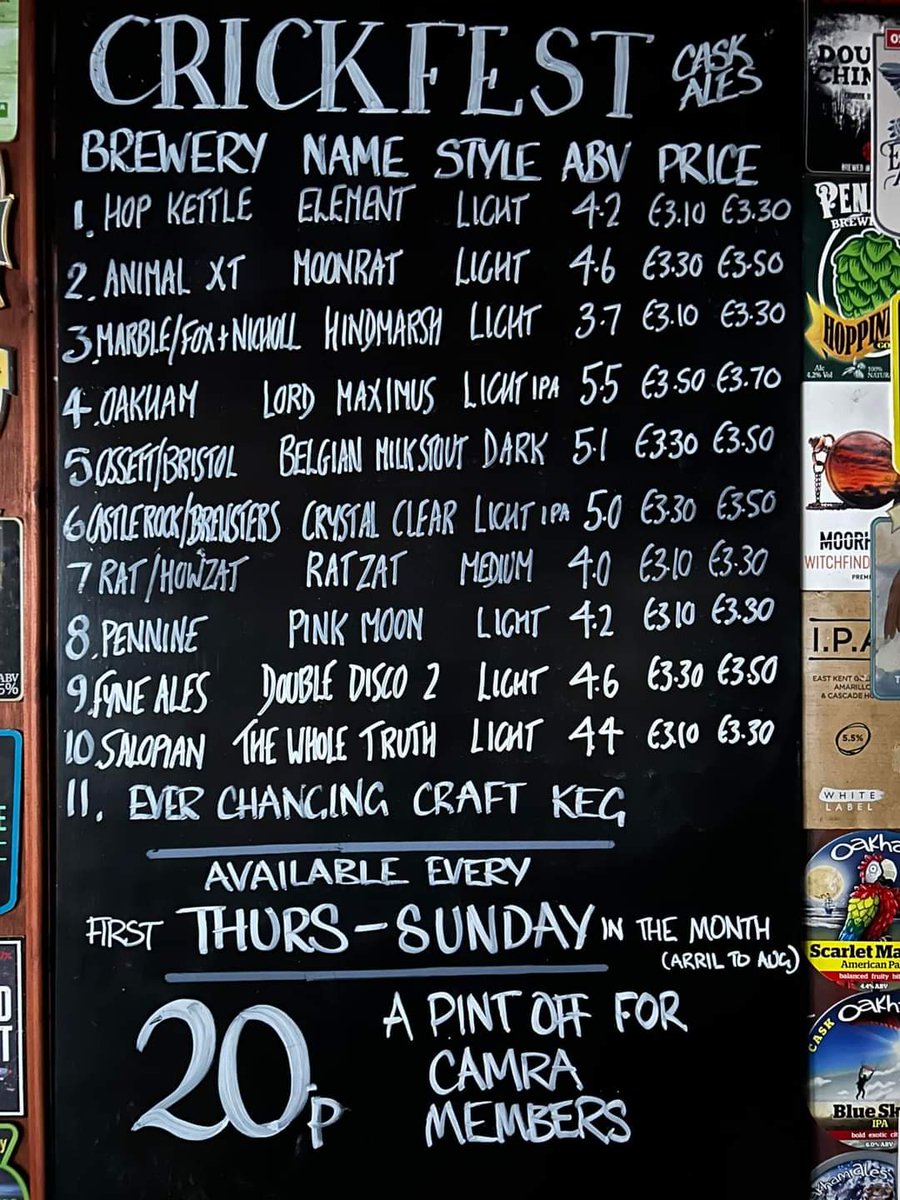 CRICKFEST CASK ALES
BREWERY NAME STYLE ABV PRICE
1. HOP KETTLE ELEMENT LIGHT 4.2 £3.10 £3.30
2. ANIMAL XT MOONRAT LIGHT 4.6 £3.30 £3.50
3. MARBLE/FOX+NICHOLL HINDMARSH LIGHT 3.7 £3.10 £3.30
4. OAKHAM LORD MAXIMUS LIGHT IPA 5.5 £3.50 £3.70
5 OSSETT/BRISTOL BELGIAN MILK STOUT DARK 5.1 £3.30 £3.50
6 CASTLE ROCK/BREWSTERS CRYSTAL CLEAR LIGHT IPA 5.0 £3.30 £3.50
7 RAT/HOWZAT RATZAT MEDIUM 4.0 £3.10 £3.30
8. PENNINE PINK MOON LIGHT 4.2 £3.10 £3.30
9. FYNE ALES DOUBLE DISCO 2 LIGHT 4.6 £3.30 £3.50
10 SALOPIAN THE WHOLE TRUTH LIGHT 4.4 £3.10 £3.30
11. EVER CHANGING CRAFT KEG
AVAILABLE EVERY
FIRST THURS-SUNDAY IN THE MONTH
(ARRIL TO AUG)
20P
A PINT OFF FOR
CAMRA
MEMBERS
HOPPIN
Alc 4.2% Vol
100%
MOORH
WITCHFIND
I.P.A
EAST KENT
AMARILLO
& CASCADE
5.5%
WHITE
LABEL
Oakha
Scarlet Ma
American Pa
balanced fruity bi
4.4% ABV
CASK
Oakha
Blue Sk
IPA
bold exotic cit
6.0% ABV
ABV
5%